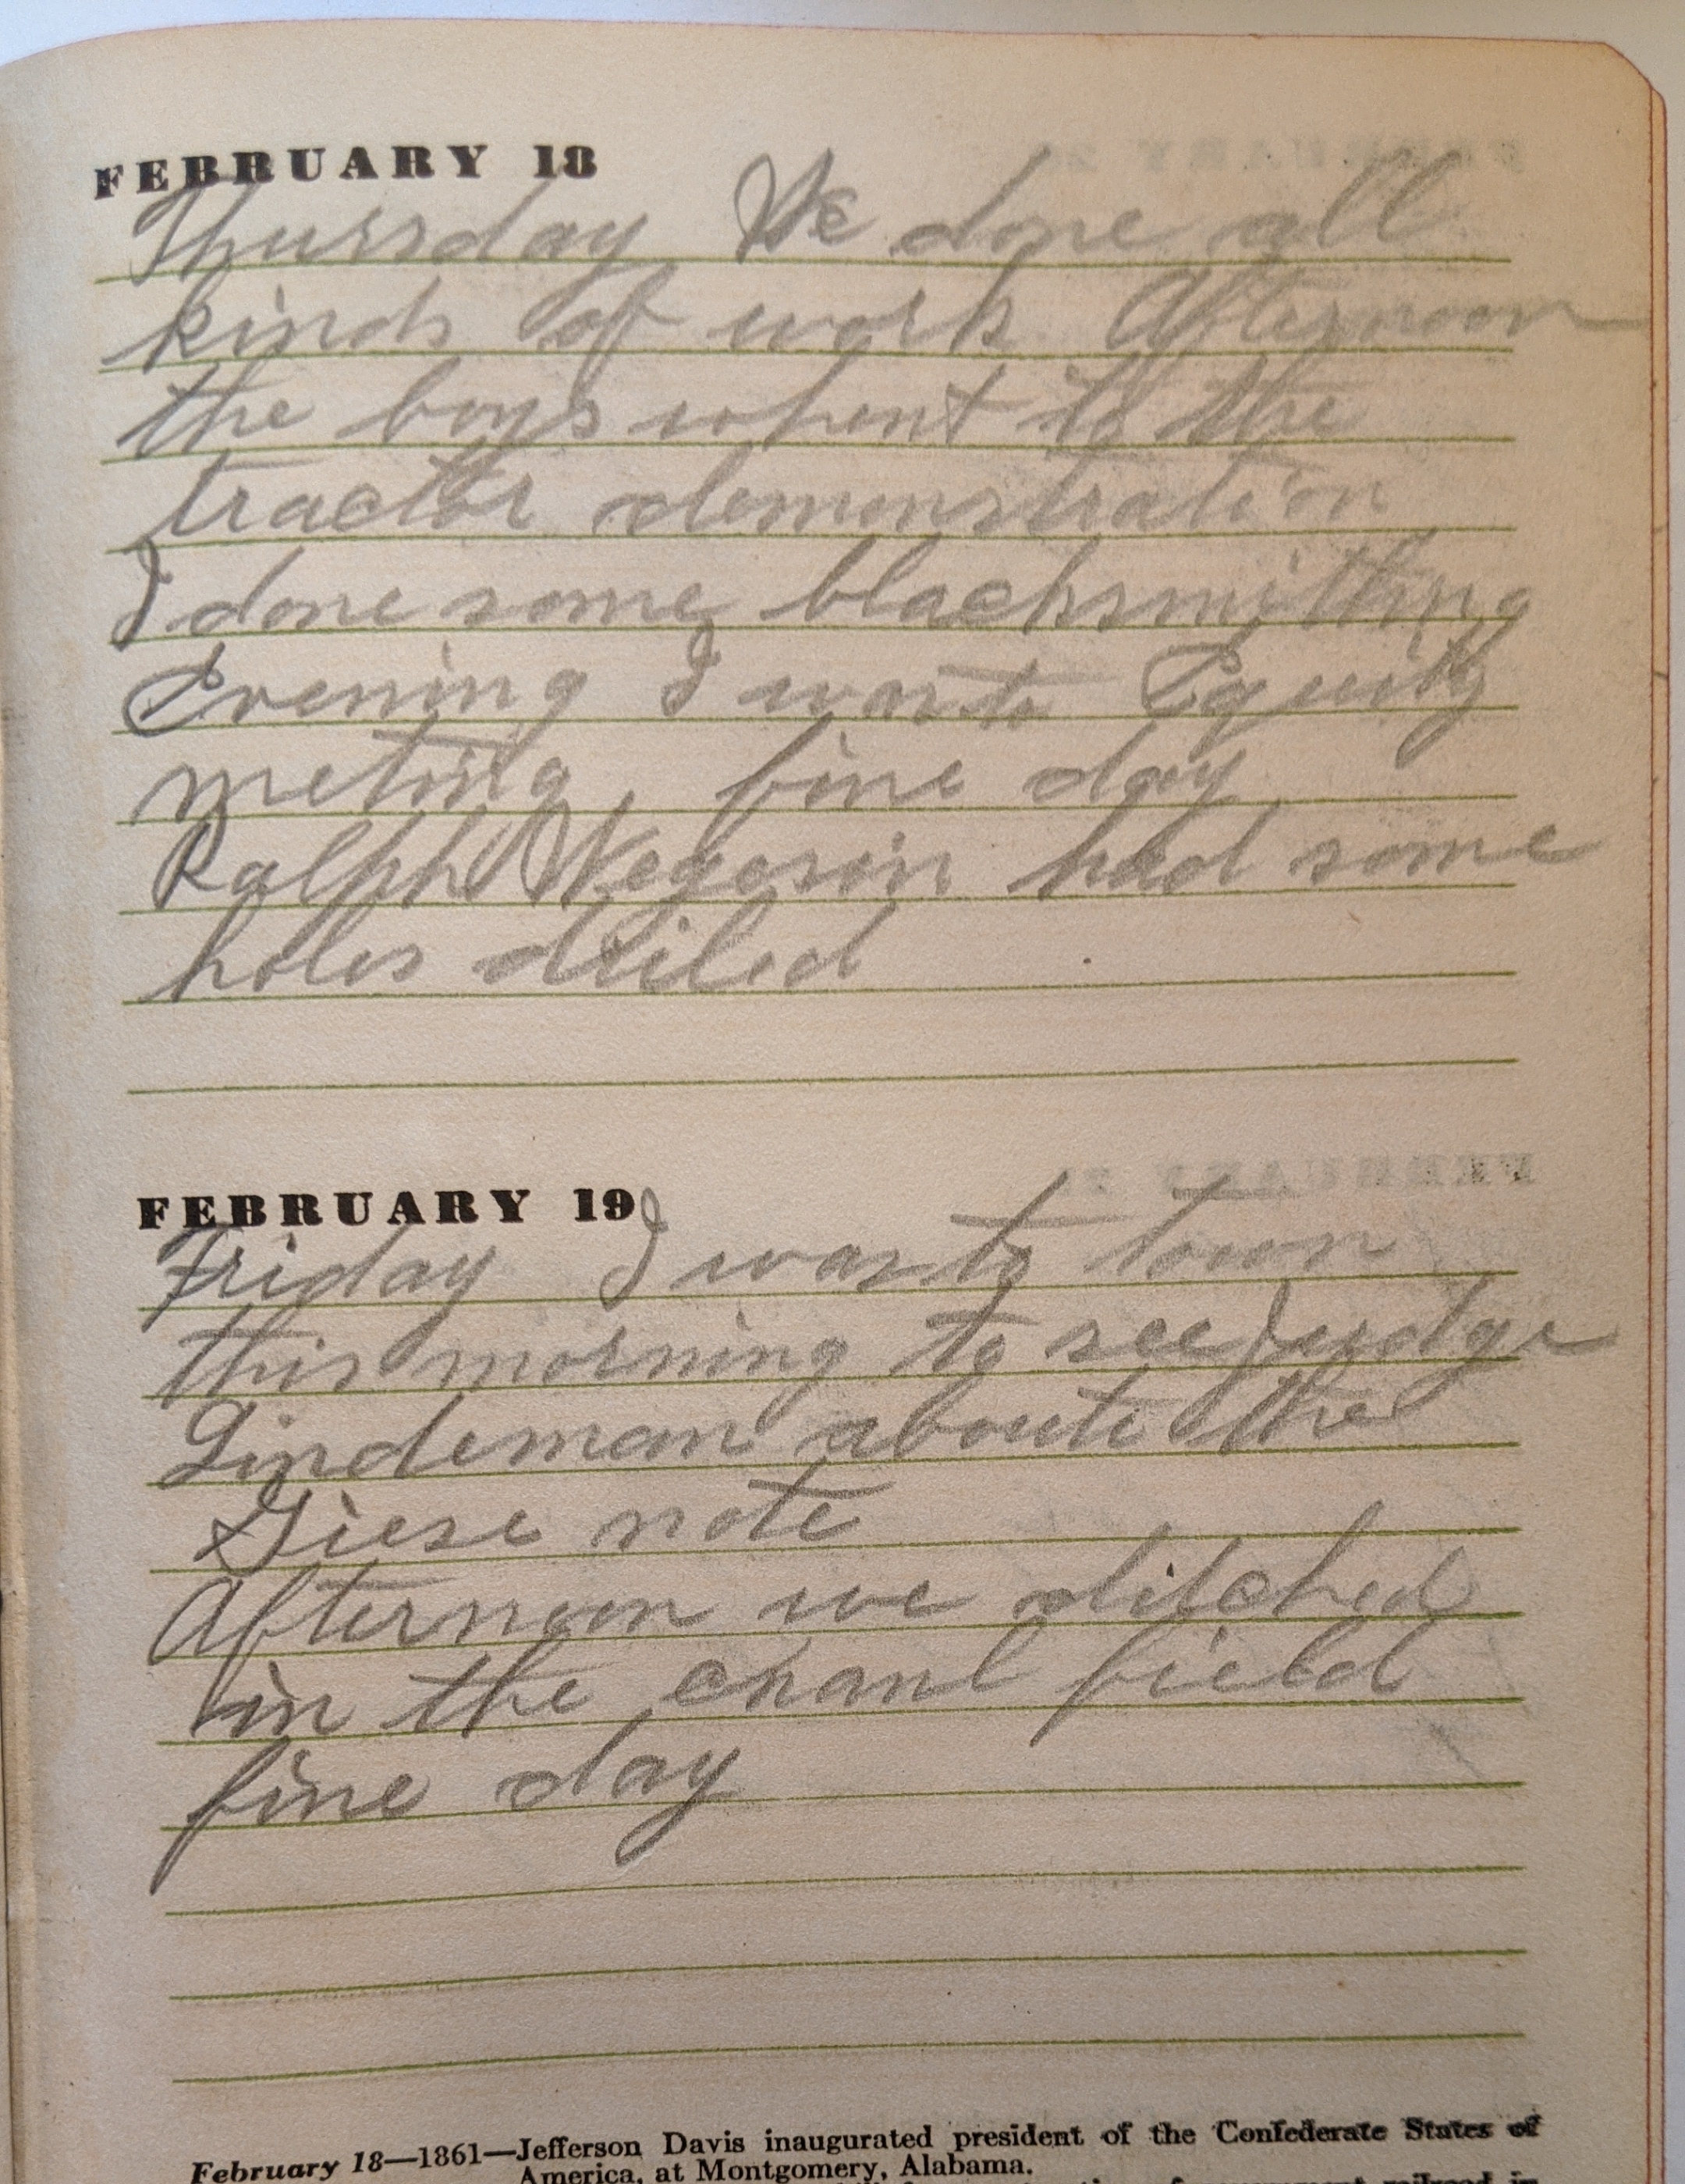 FEBRUARY 18
Thursday We done all
kinds of work Afternoon
the boys whent to the
tractor demonstration
I done some blacksmithing
Evening I was to Equity
meting, fine day
Ralph had some
holes driled
FEBRUARY 19
Friday I was to town
this morning to see Judge
Lindeman aboute the
Giese note
Afternoon we ditched
in the field
fine day
February 18—1861—Jefferson Davis inaugurated president of the Confederate States of
America, at Montgomery, Alabama.